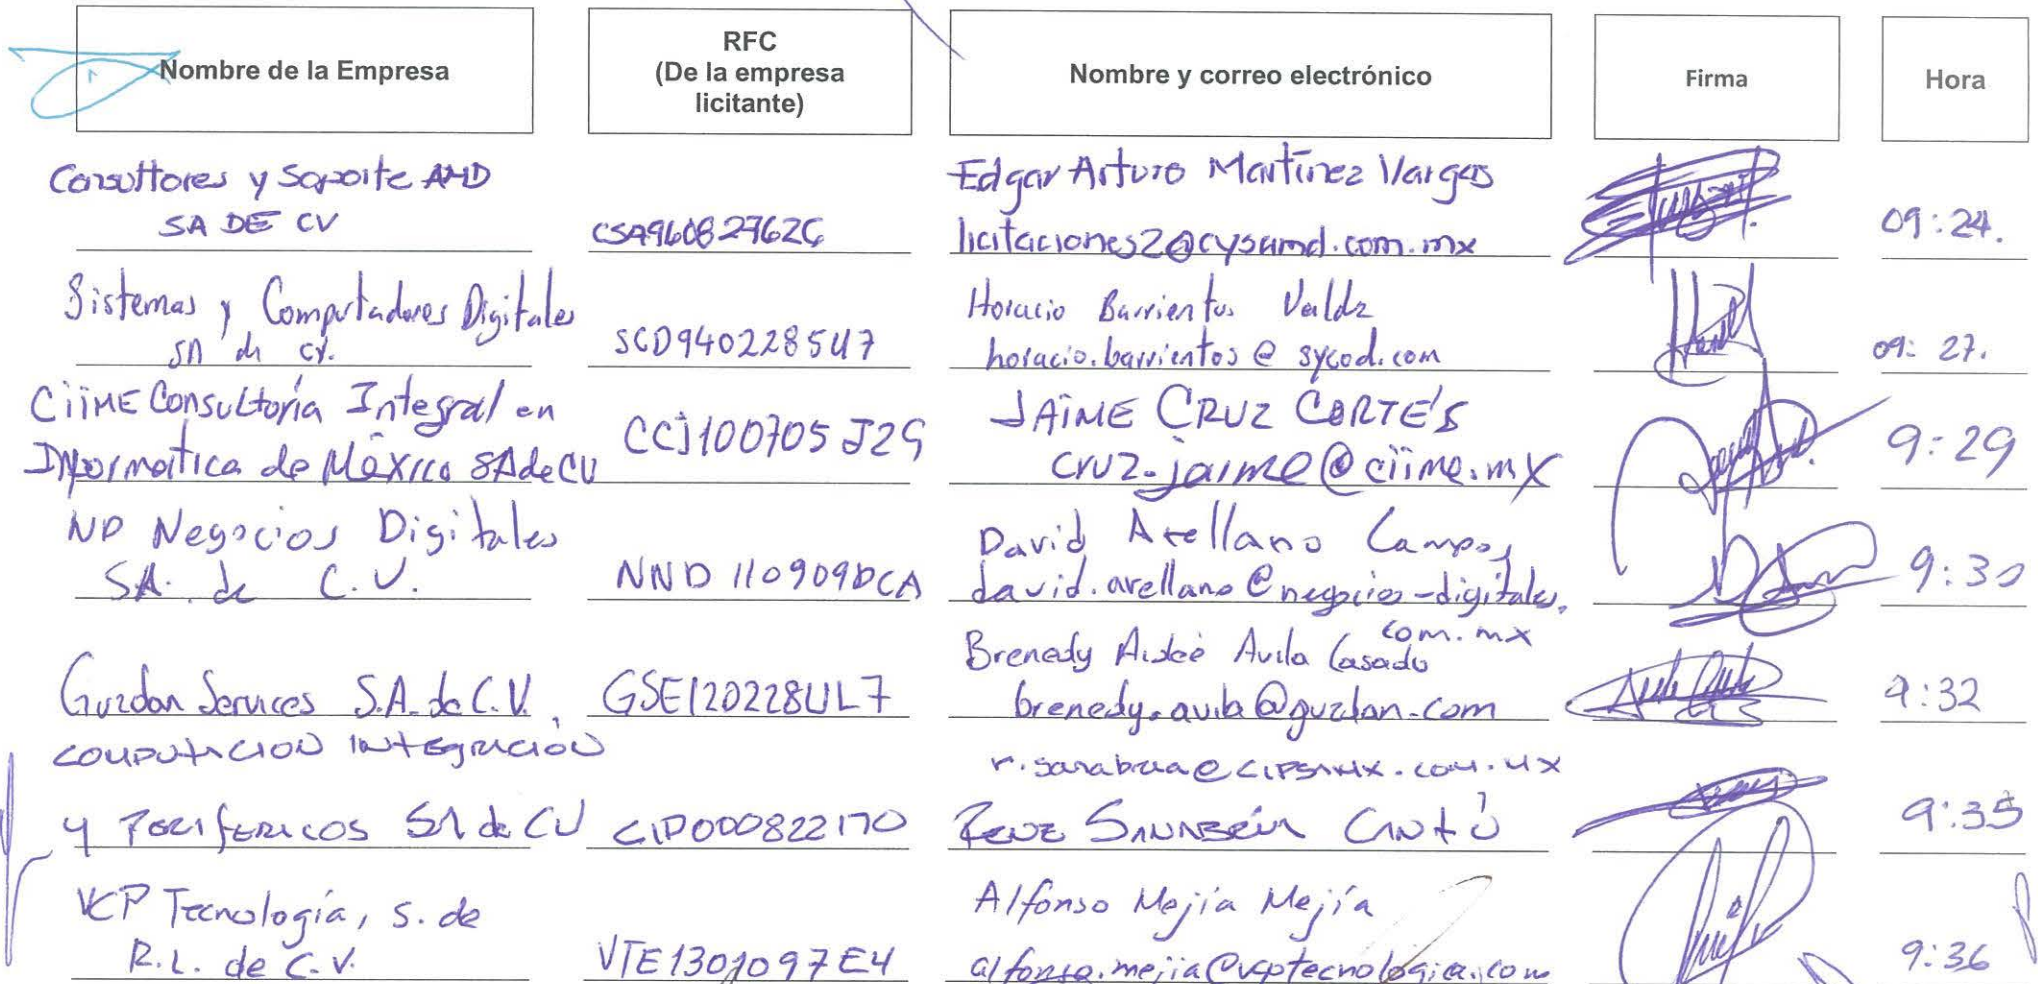 Nombre de la Empresa
RFC
(De la empresa
licitante)
Nombre y correo electrónico
Firma
Hora
Consultores y Soporte AMD
SA DE CV
CSA960827626
Edgar Arturo Martínez Vargas
licitaciones2@cysamd.com.mx
09:24.
Sistemas y Computadores Digitales
SA de CV.
SCD9402285U7
Horacio Barrientos Valdz
horacio.barrientos@sycod.com
09:27.
CiiME Consultoría Integral en
Informática de México SA de CV
CCI100705J29
JAIME CRUZ CORTÉS
cruz.jaime@ciime.mx
9:29
ND Negocios Digitales
SA. de C.V.
NND110909DCA
David Arellano Campos
david.arellano@negocios-digitales.
com.mx
9:30
Guzdan Services S.A. de C.V.
GSE120228UL7
Brenedy Avila Casado
brenedy.avila@guzdan.com
9:32
COMPUTACION INTEGRACIÓN
Y PERIFERICOS SA de CV
CIP000822170
r.sanabria@cipsamx.com.mx
RENE SANABRIA CANTÚ
9:35
VCP Tecnología, S. de
R.L. de C.V.
VTE1301097E4
Alfonso Mejía Mejía
alfonso.mejia@vcptecnologia.com
9:36